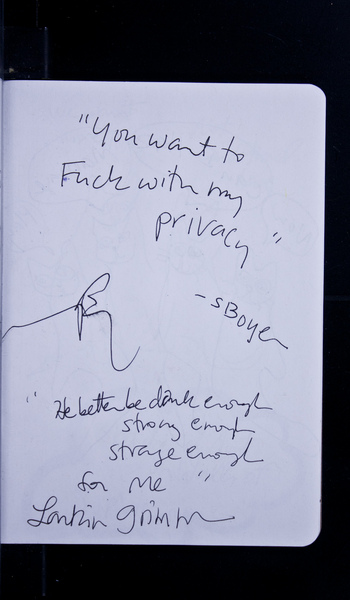 "You want to
Fuck with my
privacy"
- S Boyer
"He better be dark enough
strong enough
strange enough
for me"
Larkin Grimm